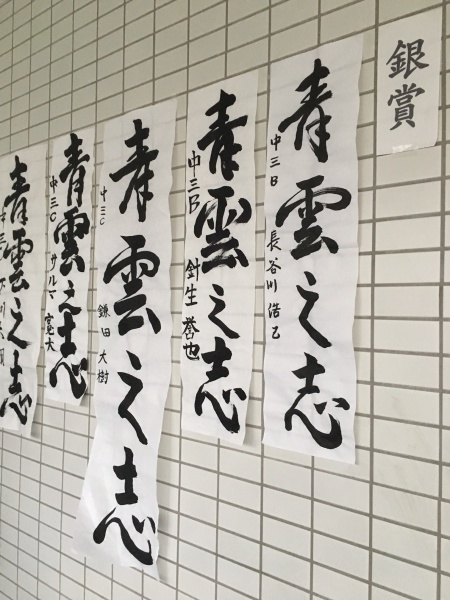 銀賞
青雲之志
中三B 長谷川 浩己
青雲之志
中三B 針生 誉也
青雲之志
中三C 鎌田 大樹
青雲之志
中三C サルマ 寛大
青雲之志